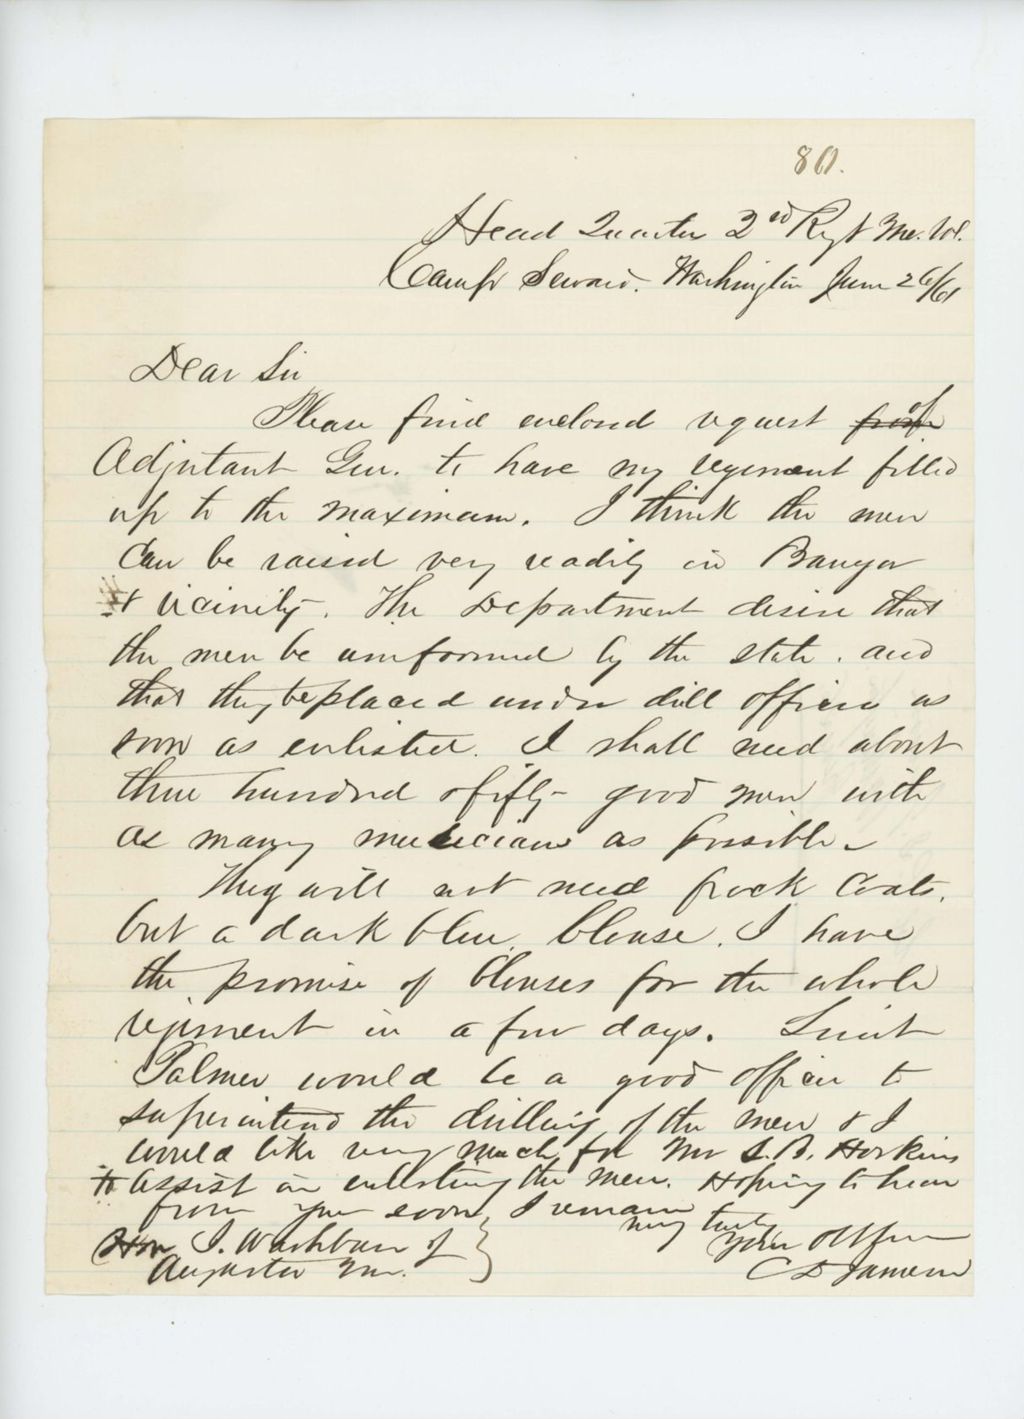 80.
Head Quarter 2nd Regt Me. Vol.
Camp Seward. Washington June 26/61
Dear Sir
Please find enclosed request from of
Adjutant Gen. to have my regiment filled
up to the maximum. I think the men
can be raised very readily in Bangor
& vicinity. The Department desire that
the men be uniformed by the state. and
that they be placed under drill officers as
soon as enlisted. I shall need about
three hundred & fifty good men with
as many musicians as possible.
They will not need frock coats,
but a dark blue blouse. I have
the promise of blouses for the whole
regiment in a few days. Lieut
Palmer would be a good officer to
superintend the drilling of the men & I
would like very much for Mr S. B. Hoskins
to assist in enlisting the men. Hoping to hear
from you soon, I remain
very truly
Your
Hon I. Washburn Jr
Augusta Me.
C D Jameson